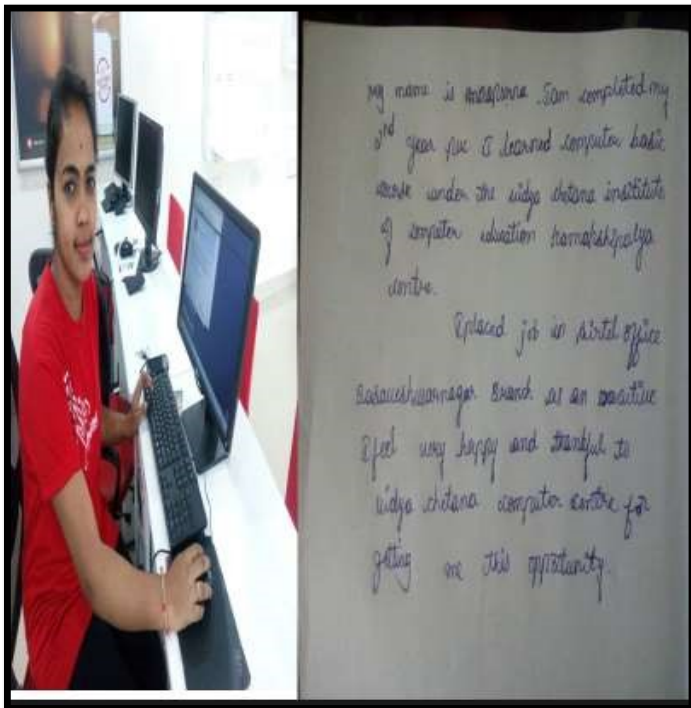 my name is Iam completed my
2nd year puc I learned computer basic
under the vidya chetana institute
of computer education kamakshipalya
centre.
I placed job in Airtel office
Basaveshwarnagar Branch as an
I feel very happy and thankful to
vidya chetana computer centre for
getting me this opportunity.